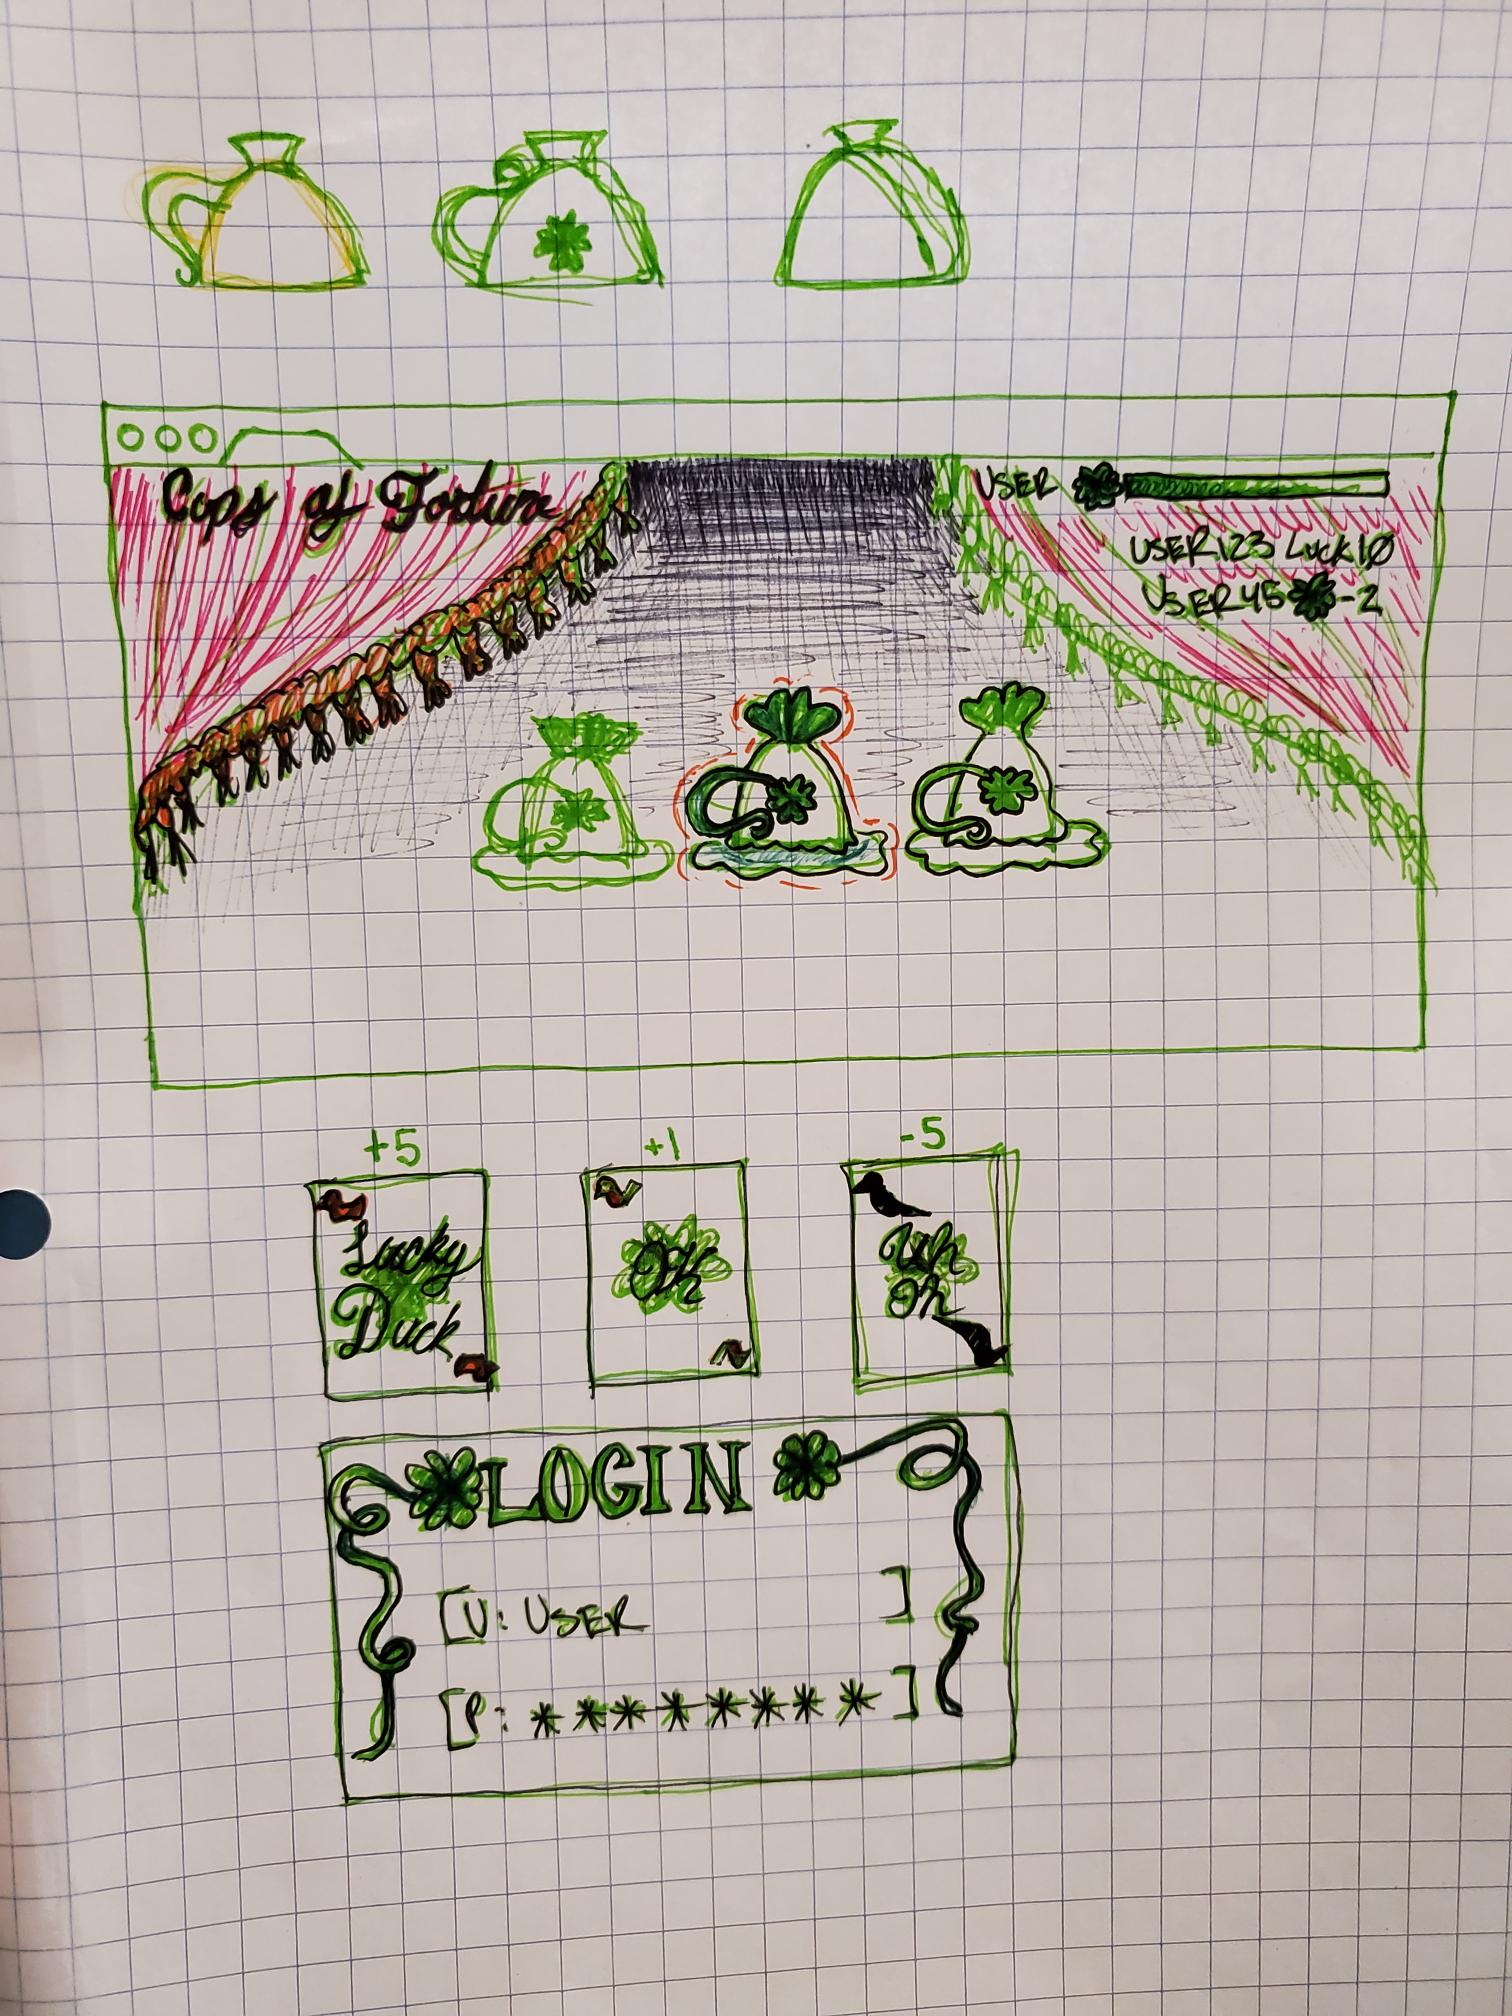 Cups of Fortune
USER
USER123 Luck 10
USER45 -2
+5
+1
-5
Lucky
Duck
OK
Uh
Oh
LOGIN
[U: USER ]
[P: ******** ]